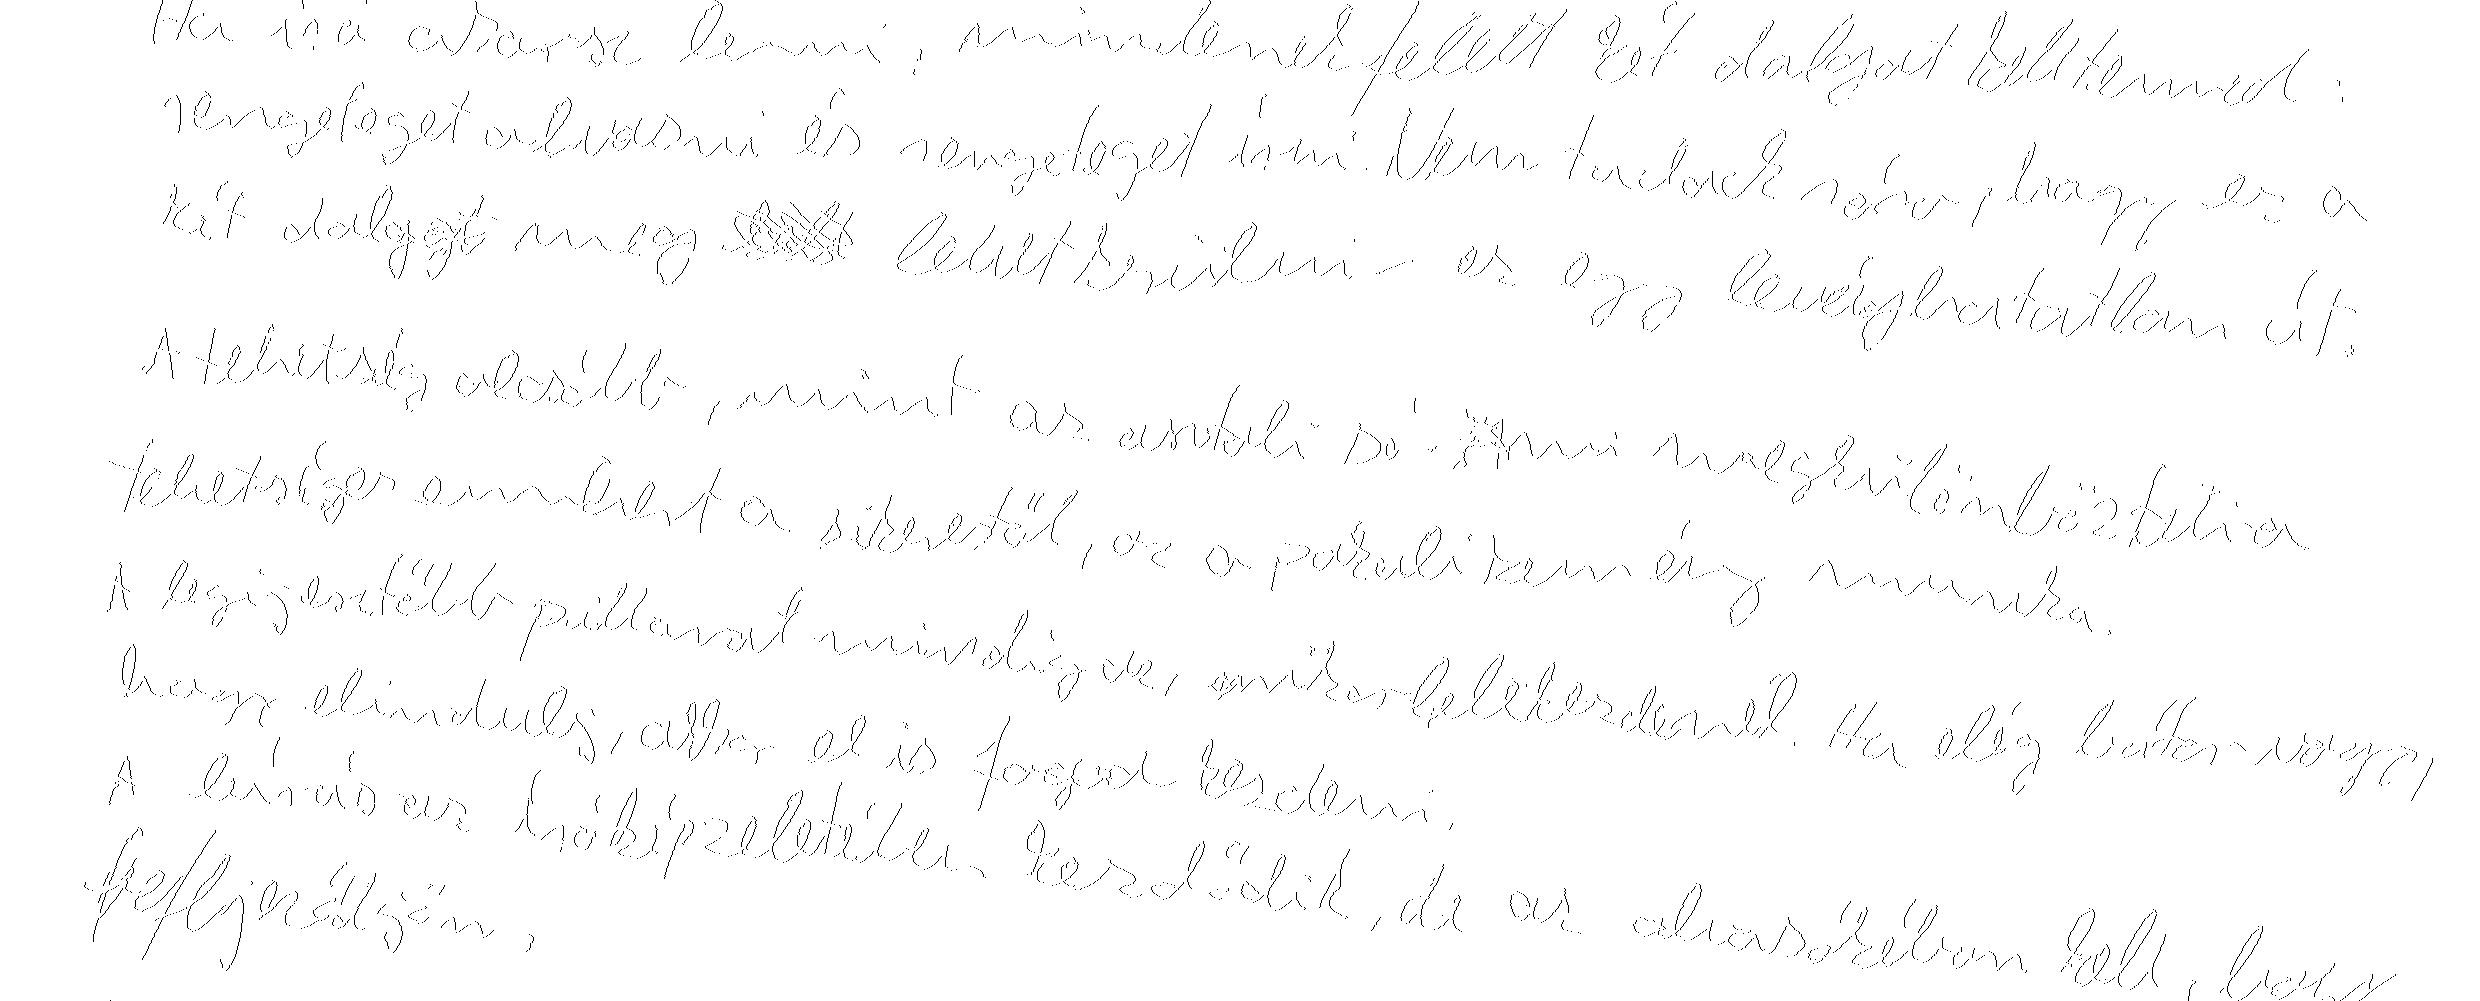 Ha író akarsz lenni, mindenekfelett két dolgot kell tenned:
rengeteget olvasni és rengeteget írni. Nem tudok róla, hogy ez a
két dolgot meg lehet kerülni – ez egy levághatatlan út.
A tehetség olcsóbb, mint az asztali só. Ami megkülönbözteti a
tehetséges embert a sikerestől, az a pokoli kemény munka.
A legijesztőbb pillanat mindig az, amikor bele kezdenél. Ha elég bátor vagy,
hogy elindulj, akkor el is fogod kezdeni.
A leírás az író képzeletében kezdődik, de az olvasókéban kell, hogy
befejeződjön.